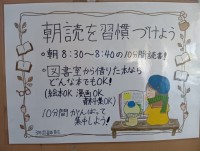 朝読を習慣づけよう
・朝8:30~8:40の10分間読書!
・図書室から借りた本なら
どんな本でもOK!
(絵本OK 漫画OK
10分間がんばって
集中しよう!